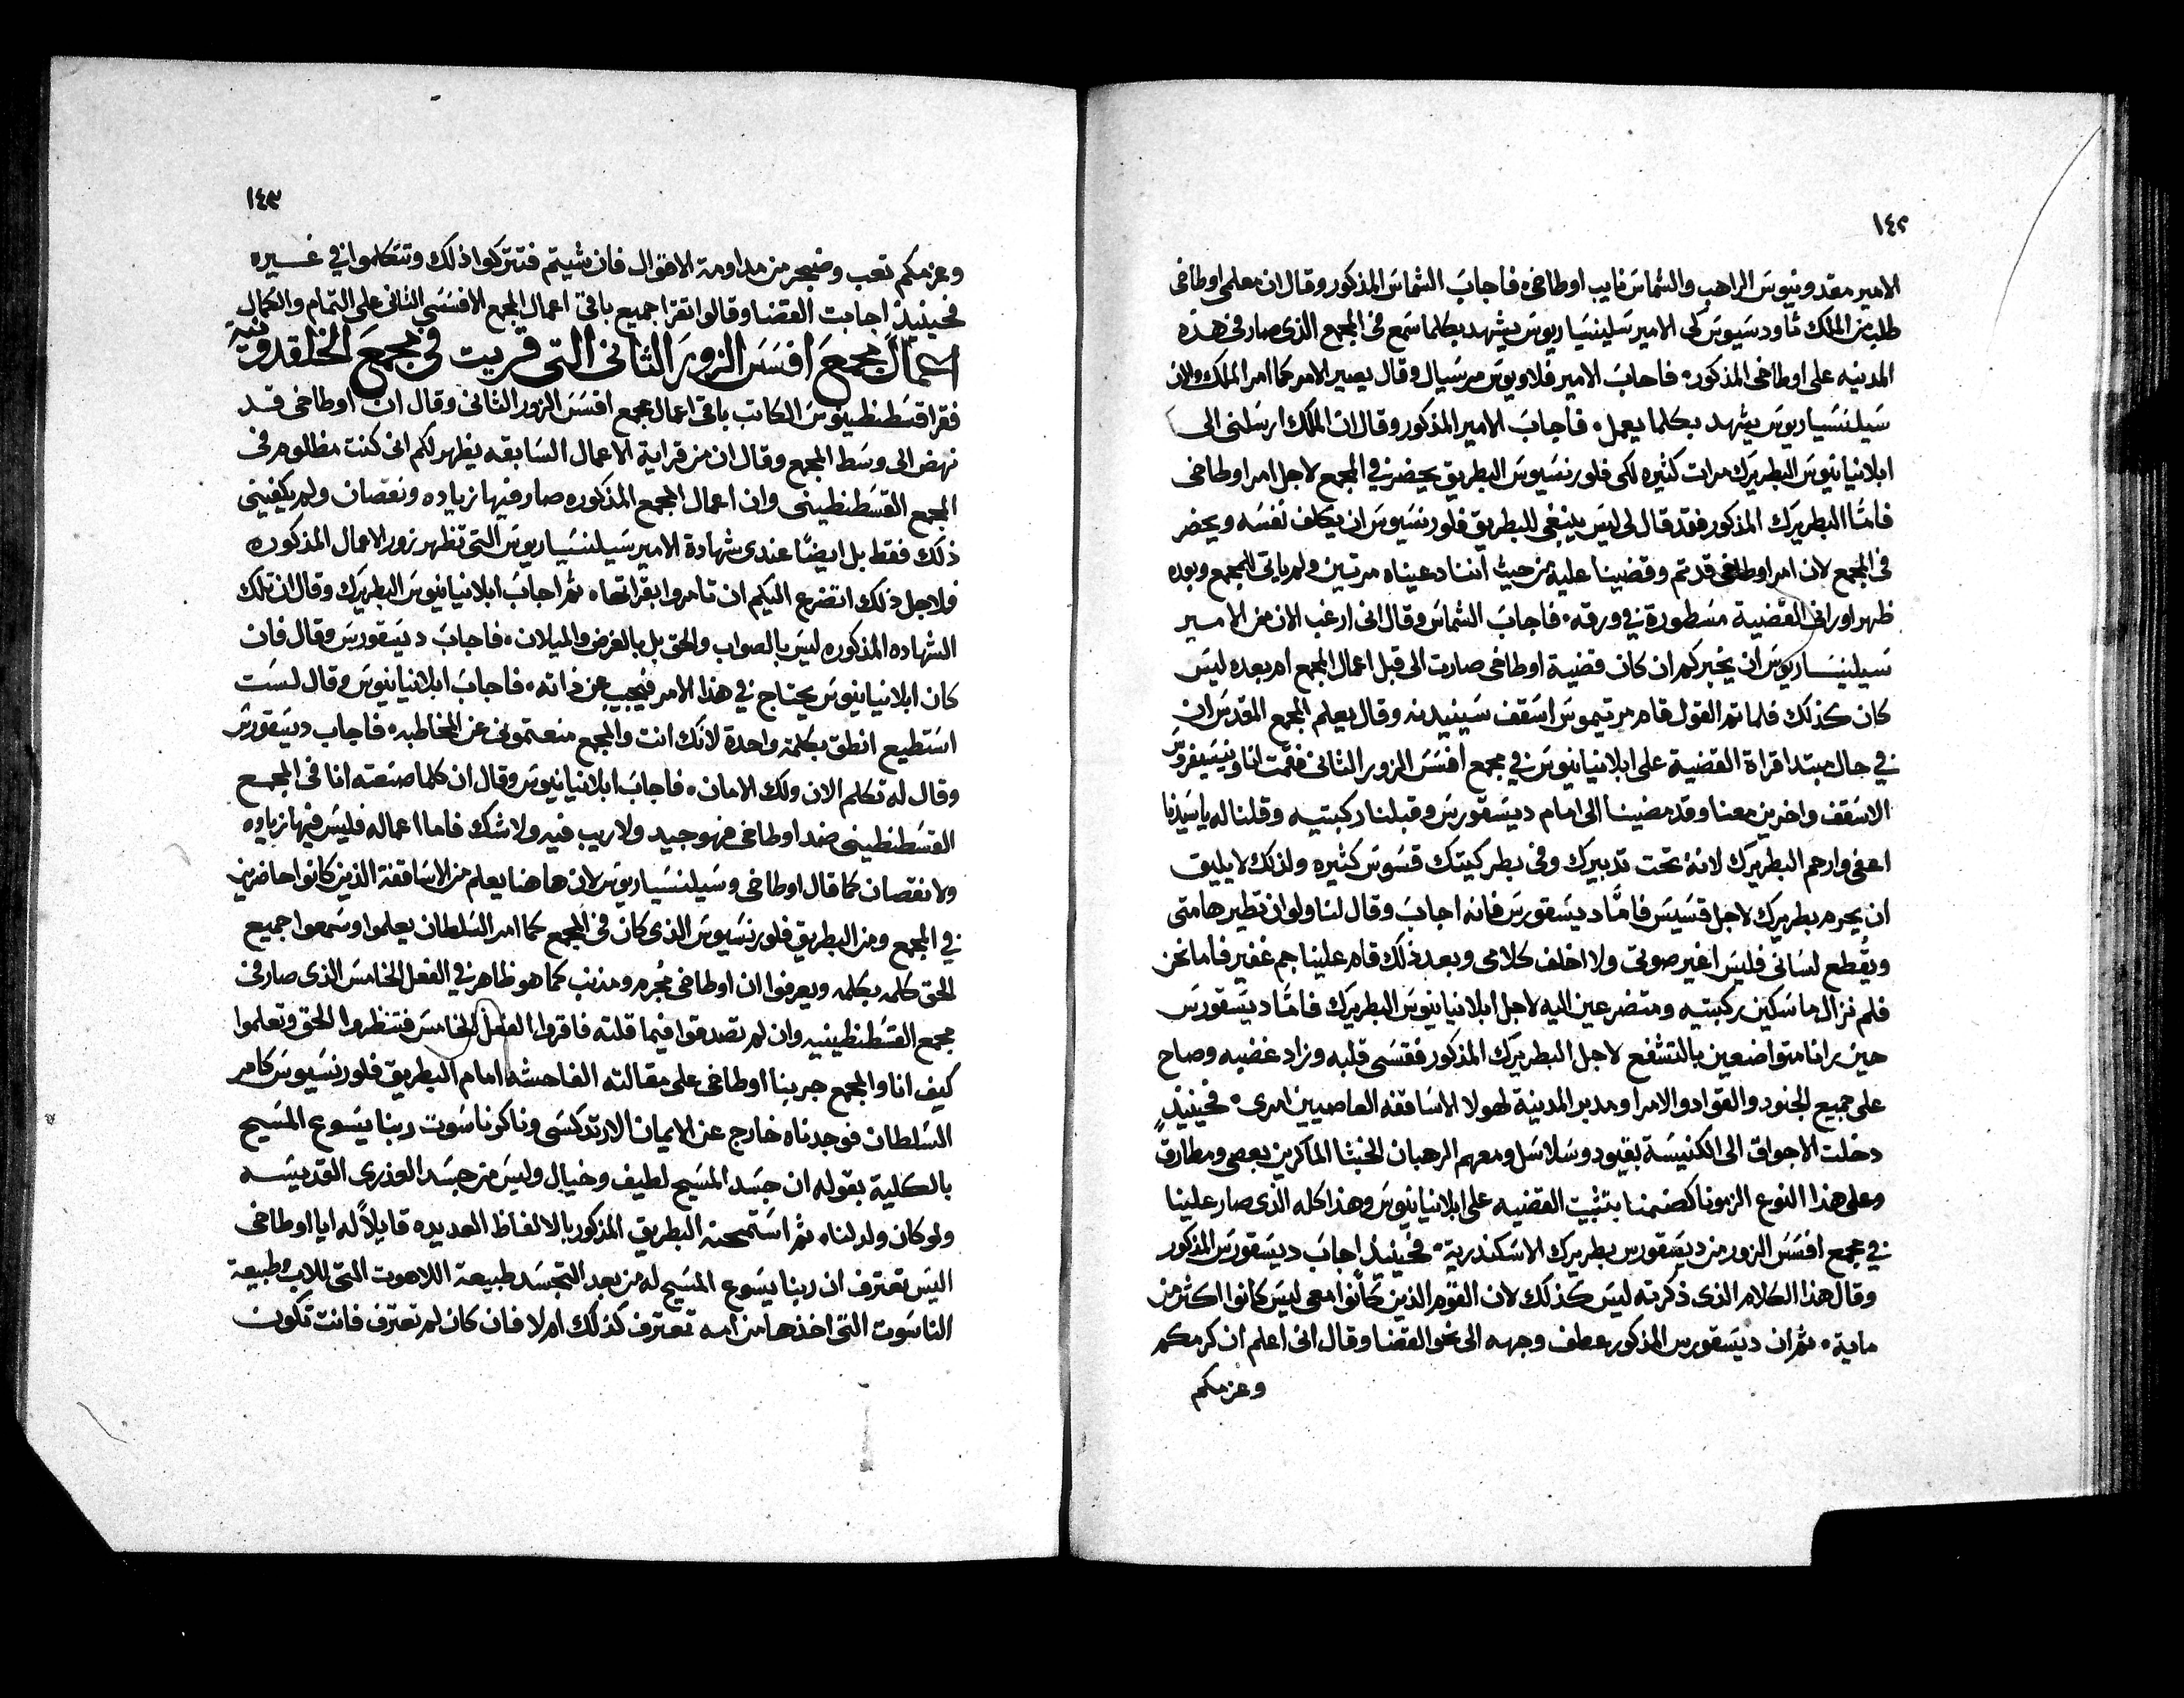 ١٤٢
الامير مقدونيوس الراهب والشماس نايب اوطاخى فاجاب الشماس المذكور وقال ان معلمى اوطاخى
طلب من الملك ثاودسيوس لكى الامير سيلينسياريوس يشهد بكلما سمع فى المجمع الذى صار فى هذه
المدينه على اوطاخى المذكور فاجاب الامير فلاويوس مرسيال وقال يصير الامر كما امر الملك والان
سيلنسياريوس يشهد بكلما يعمل فاجاب الامير المذكور وقال ان الملك ارسلنى الى
ابلانيانيوس البطريرك مرات كثيره لكى فلورنسيوس البطريق يحضر في المجمع لاجل امر اوطاخى
فامّا البطريرك المذكور فقد قال لى ليس ينبغى للبطريق فلورنسيوس ان يكلف نفسه ويحضر
فى المجمع لان امر اوطاخى قد تم وقضينا عليه من حيث اننا دعيناه مرتين ولم ياتى المجمع وبعده
ظهر اورانى القضية مسطورة في ورقه فاجاب الشماس وقال انى ارغب الان من الامير
سيلينسياريوس ان يخبركم ان كان قضية اوطاخى صارت الى قبل اعمال المجمع ام بعده ليس
كان كذلك فلما تم القول قام مرتيموس اسقف سينيدنه وقال يعلم المجمع المقدس ان
في حال مبتدا قراة القضية على ابلانيانيوس في مجمع افسس المزور الثانى فقمت انا ونيسيفروس
الاسقف واخرين معنا وقد مضينا الى امام ديسقورس وقبلنا ركبتيه وقلنا له يا سيدنا
اعفى وارحم البطريرك لانه تحت تدبيرك وفى بطركيتك قسوس كثيره ولذلك لا يليق
ان يحرم بطريرك لاجل قسيس فامّا ديسقورس فانه اجاب وقال لنا ولو ان تطير هامتى
ويقُطع لسانى فليس اغير صوتى ولا اخلف كلامى وبعد ذلك قام علينا جم غفير فاما نحن
فلم نزال ماسكين ركبتيه ومتضرعين اليه لاجل ابلانيانيوس البطريرك فامّا ديسقورس
حين رانا متواضعين بالتشفع لاجل البطريرك المذكور فقسى قلبه وزاد غضبه وصاح
على جميع الجنود والقواد والامرا ومدبر المدينة لهولا الاساقفه العاصيين امرى فحينيذٍ
دخلت الاجواق الى الكنيسة بقيود وسلاسل ومعهم الرهبان الخبثا الماكرين بعصى ومطارق
وعلى هذا النوع الزمونا كضمنا بتثبيت القضيه على ابلانيانيوس وهذا كله الذى صار علينا
في مجمع افسس الزور من ديسقورس بطريرك الاسكندرية فحينيذٍ اجاب ديسقورس المذكور
وقال هذا الكلام الذى ذكرته ليس كذلك لان القوم الذين كانوا معى ليس كانوا اكثر من
ماية ثم ان ديسقورس المذكور عطف وجهه الى نحو القضا وقال انى اعلم ان كرمكم
وعزمكم
١٤٣
وعزمكم تعب وضجر من مداومة الاقوال فان شيتم فتتركوا ذلك وتتكلموا في غيره
فحينيذٍ اجابت القضا وقالوا تقرا جميع باقى اعمال المجمع الافسسى الثانى على التمام والكمال
اعمال مجمع افسس الزور الثانى التى قريت فى مجمع الخلقدونية
فقرا قسطنطينوس الكاتب باقى اعمال مجمع افسس الزور الثانى وقال ان اوطاخى قد
نهض الى وسط المجمع وقال ان من قراية الاعمال السابقه يظهر لكم انى كنت مظلوم فى
المجمع القسطنطينى وان اعمال المجمع المذكوره صار فيها زياده ونقصان ولم يكفينى
ذلك فقط بل ايضًا عندى شهادة الامير سيلنسياريوس التى تظهر زور الاعمال المذكوره
فلاجل ذلك اتضرع اليكم ان تامروا بقراتها ثم اجاب ابلانيانيوس البطريرك وقال ان تلك
الشهاده المذكوره ليس بالصواب والحق بل بالغرض والميلان فاجاب ديسقورس وقال فان
كان ابلانيانيوس يحتاج في هذا الامر فيجيب عن ذاته فاجاب ابلانيانيوس وقال لست
استطيع انطق بكلمة واحدة لانك انت والمجمع منعتمونى عن المخاطبه فاجاب ديسقورس
وقال له تكلم الان ولك الامان فاجاب ابلانيانيوس وقال ان كلما صنعته انا فى المجمع
القسطنطينى ضد اوطاخى فهو جيد ولا ريب فيه ولا شك فاما اعماله فليس فيها زياده
ولا نقصان كما قال اوطاخى وسيلنسياريوس لان هاهنا يعلم من الاساقفة الذين كانوا حاضرين
في المجمع ومن البطريق فلورنسيوس الذى كان فى المجمع كما امر السلطان يعلموا وسمعوا جميع
الحق كلمه بكلمه ويعرفوا ان اوطاخى مجُرم ومذنب كما هو ظاهر في الفعل الخامس الذى صار فى
مجمع القسطنطينيه وان لم تصدقوا فيما قلته فاقروا الفعل الخامس فتنظروا الحق وتعلموا
كيف انا والمجمع جربنا اوطاخى على مقالته الفاحشه امام البطريق فلورنسيوس كامر
السلطان فوجدناه خارج عن الايمان الارتدكسى وناكر ناسوت ربنا يسوع المسيح
بالكلية بقوله ان جسد المسيح لطيف وخيال وليس من جسد العذرى القديسه
ولو كان ولد لنا ثم استمحنه البطريق المذكور بالالفاظ العديده قايلاً له ايا اوطاخى
اليس تعترف ان ربنا يسوع المسيح له من بعد التجسد طبيعة اللاهوت التى للاب وطبيعة
الناسوت التى اخذها من امه تعترف كذلك ام لا فان كان لم تعترف فانت تكون